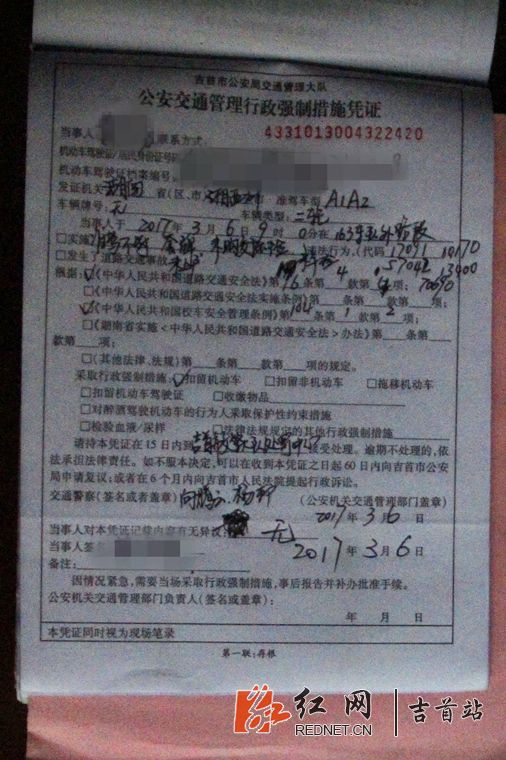 吉首市公安局交通管理大队
公安交通管理行政强制措施凭证
当事人 联系方式 4331013004322420
机动车驾驶证/居民身份证号码
机动车驾驶证档案编号
发证机关 湖南 省(区、市) 湘西 准驾车型 A1A2
车辆牌号 无 车辆类型
当事人于 2017年3月6日9时0分在
□实施 违法行为,(代码 17091
□发生了道路交通事故 57042 13400
根据:《中华人民共和国道路交通安全法》第96条第 款第 项 70690
□《中华人民共和国道路交通安全法实施条例》第 条第 款第 项
《中华人民共和国校车安全管理条例》第 条第1款第2项
□《湖南省实施<中华人民共和国道路交通安全法>办法》第 条第
款第 项;
□(其他法律、法规)第 条第 款第 项的规定。
采取行政强制措施:✓扣留机动车 □扣留非机动车 □拖移机动车
□扣留机动车驾驶证 □收缴物品
□对醉酒驾驶机动车的行为人采取保护性约束措施
□检验血液/尿样 □法律法规规定的其他行政强制措施
请持本凭证在15日内到 接受处理。逾期不处理的,依
法承担法律责任。如不服本决定,可以在收到本凭证之日起60日内向吉首市公安
局申请复议;或者在6个月内向吉首市人民法院提起行政诉讼。
交通警察(签名或者盖章) (公安机关交通管理部门盖章)
2017年3月6日
当事人对本凭证记载内容有无异议: 无
当事人签名 2017年3月6日
备注:
因情况紧急,需要当场采取行政强制措施,事后报告并补办批准手续。
公安机关交通管理部门负责人(签名或盖章): 年 月 日
本凭证同时视为现场笔录
第一联:存根
红网 吉首站
REDNET.CN